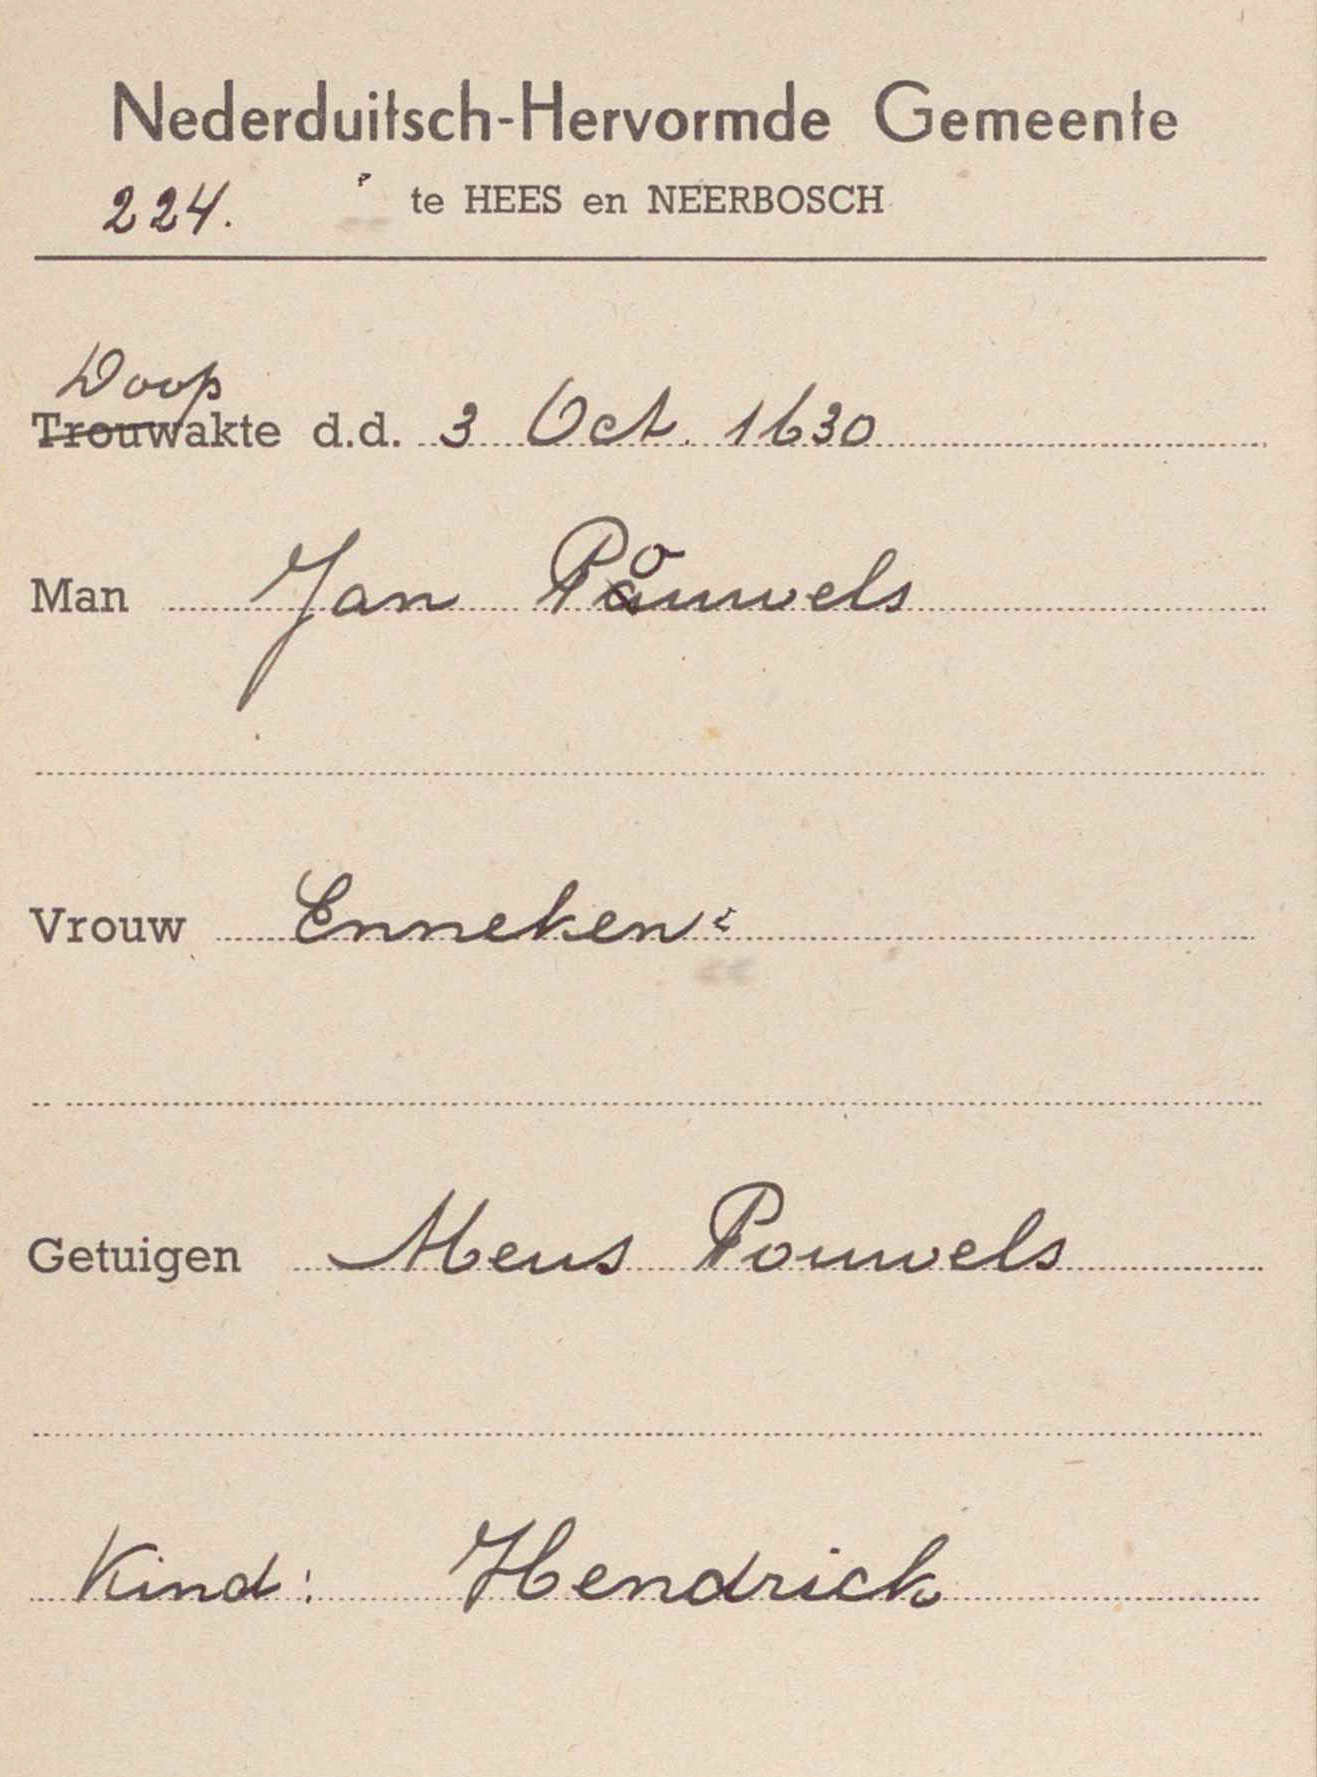 Nederduitsch-Hervormde Gemeente
224. te HEES en NEERBOSCH
Doop
Trouwakte d.d. 3 Oct. 1630
Man Jan Pouwels
Vrouw Enneken
Getuigen Meus Pouwels
Kind: Hendrick